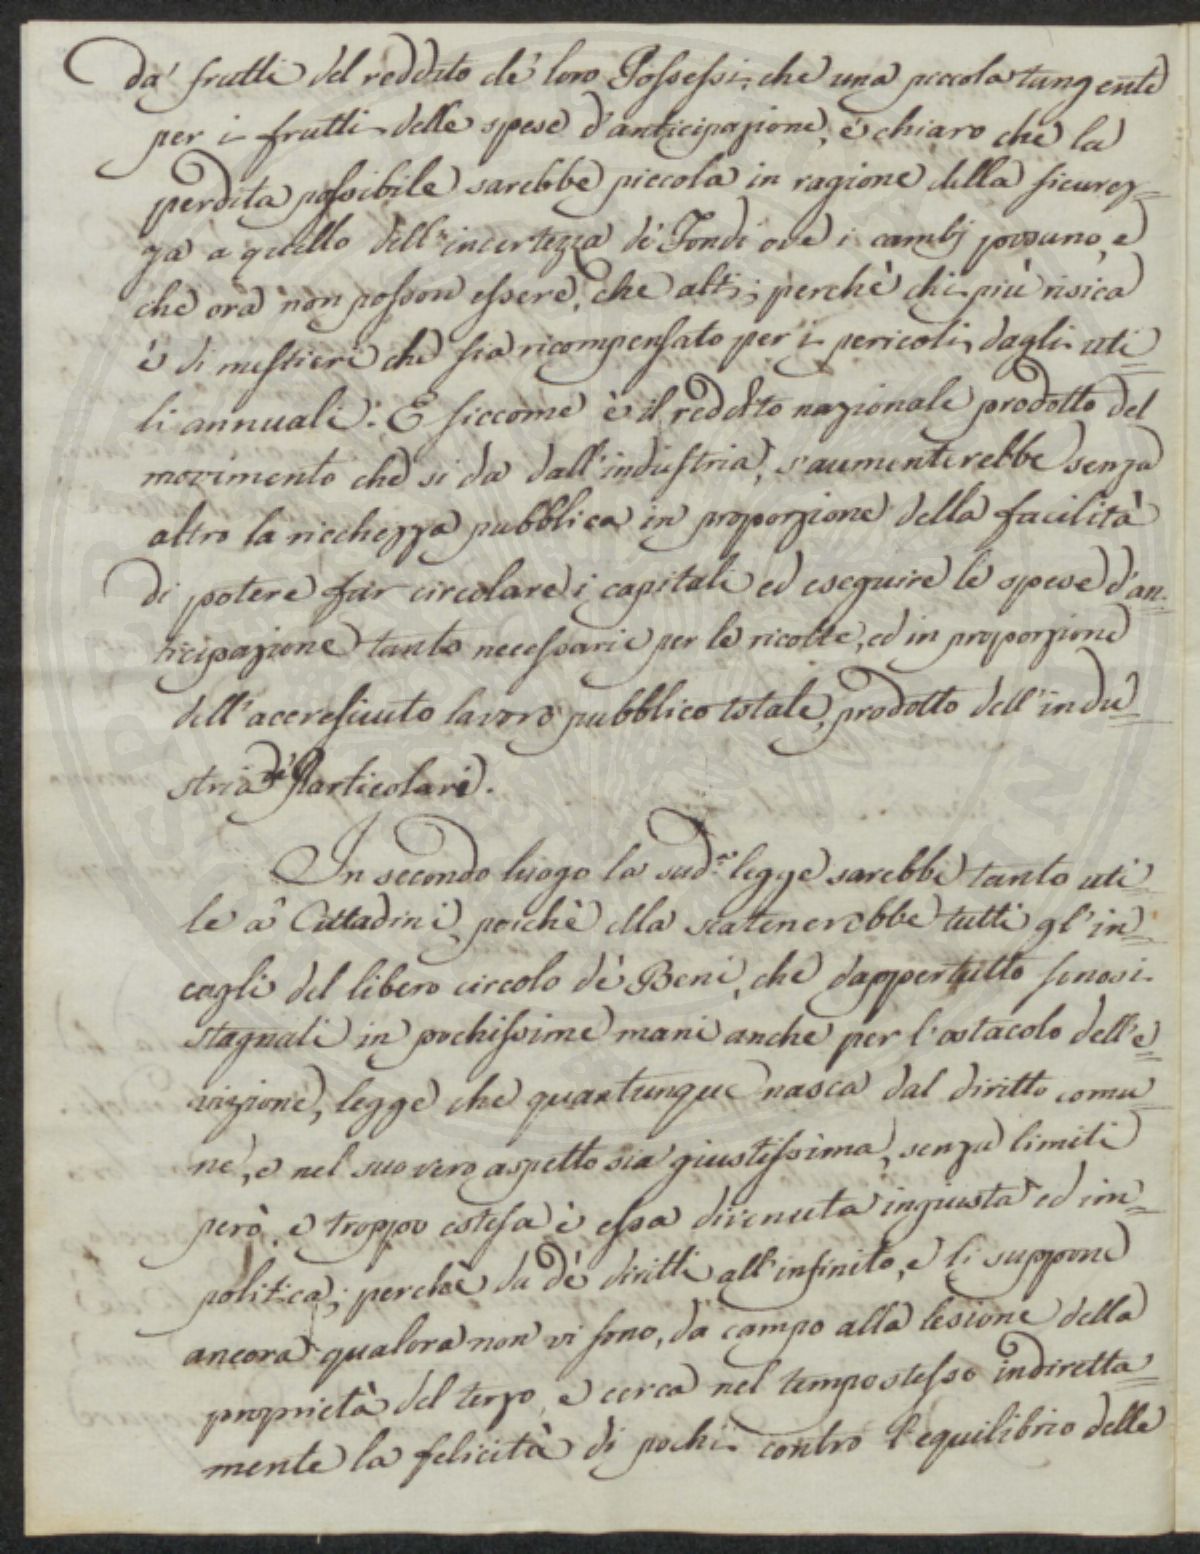 da' frutti del reddito de' loro Possessi, che una piccola tangente
per i frutti delle spese d'anticipazione, è chiaro che la
perdita possibile sarebbe piccola in ragione della sicurez=
za a quello dell'incertezza de' Fondi ove i cambj possuno, e
che ora non posson essere, che alti; perchè chi più risica
è di mestieri che sia ricompensato per i pericoli dagli uti=
li annuali. E siccome è il reddito nazionale prodotto del
movimento che si da dall'industria, s'aumenterebbe senza
altro la ricchezza pubblica in proporzione della facilità
di potere far circolare i capitali ed eseguire le spese d'an=
ticipazione tanto necessarie per le ricolte, ed in proporzione
dell'accresciuto lavoro pubblico totale, prodotto dell'indu=
stria de' Particolari.
In secondo luogo la sud.ta legge sarebbe tanto uti=
le a' Cittadini, poichè ella scatenerebbe tutti gl'in=
cagli del libero circolo de' Beni, che dappertutto sonosi
stagnati in pochissime mani anche per l'ostacolo dell'e=
vizione, legge che quantunque nasca dal diritto comu=
ne, e nel suo vero aspetto sia giustissima, senza limiti
però, e troppo estesa è essa divenuta ingiusta ed im=
politica; perchè da de' diritti all'infinito, e li suppone
ancora qualora non vi sono, da campo alla lesione della
proprietà del terzo, e cerca nel tempo stesso indiretta=
mente la felicità di pochi contro l'equilibrio delle